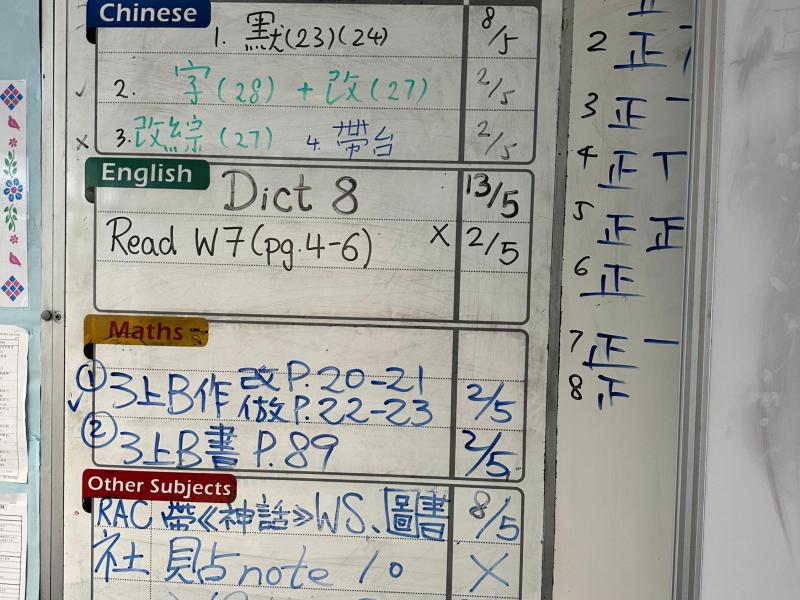 Chinese
1. 默(23)(24) 8/5
✓ 2. 字(28) + 改(27) 2/5
x 3. 改綜(27) 4. 帶台 2/5
English
Dict 8 13/5
Read W7(pg.4-6) X 2/5
Maths
① 3上B作 改P.20-21
✓ 做P.22-23 2/5
② 3上B書 P.89 2/5
Other Subjects
RAC 帶《神話》WS、圖書 8/5
社 貼note 10 X
正
2 正
3 正 一
4 正 丅
5 正 正
6 正
7 正 一
8 正